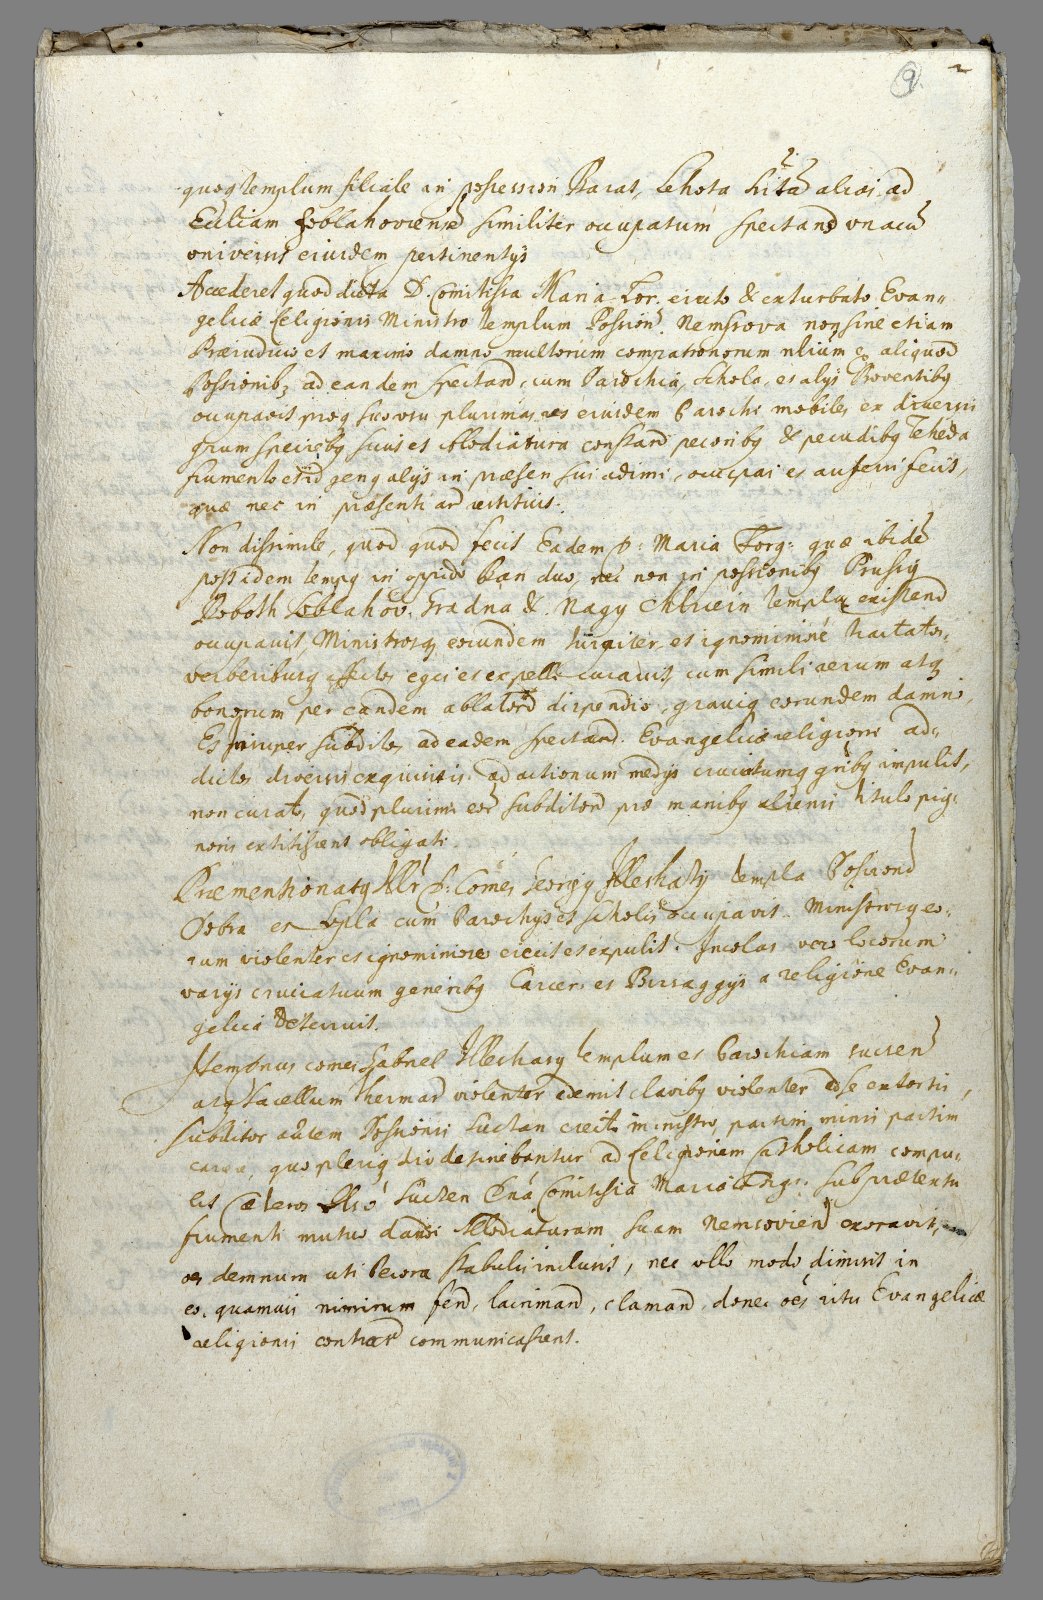 9 2
quoq templum filiale in possession Barat, Lehota sitã alias ad
Eccliam Soblahoviens similiter occupatum spectand vnacũ
vniversis eiusdem pertinentys
Accederet quod dicta D. Comitissa Maria For. eiecto & exturbato Evan-
gelicæ Religionis Ministro templum Possion. Nemssova non sine etiam
Præiudicio et maximo damno multorum compatronorum aliquod
Possionibq ad eandem spectand, cum Parochia, schola, et alys Proventibq
occupavit proq suo vsu plurimas res eiusdem Parochi mobiles ex diversis
grum speciebq suius et Allodiatura constand pecoribq & pecudibq
frumento et id genq alys in præsen sui adimi, occupari et auferri fecit
quæ nec in præsentiard restituit.
Non dissimile, quod quod fecit Eadem D: Maria Forg: quæ ibidẽ
possidem tempq in oppido Ban duo, nec non in possionibq Prussy
Doboth Soblahov. Hradna & Nagy Chlivein templa existend
occupavit, Ministrosq eorundem turpiter et ignomininé tractatos,
verberiburq affectos egei et expelli curavit, cum simili rerum atq
bonorum per eandem ablatord dispendio, graviq eorundem damno,
Et insuper subditos ad eadem spectand. Evangelicæ religioni ad-
dictos diversis exquisitis ad actionum medys cruciatumq gribq impulit,
non curato, quod plurimi eor subditord præ manibq alienis titulo pig-
noris extitissent obligati.
Præmentionatq Illr D: Comes Georgiq Illeshazy templa Possiond
Dobra et Lopla cum Parochys et scholis occupavit. Ministrosq eo-
rum violenter et ignominiose eiecit et expulit. Incolas vero locorum
varys cruciatuum generibq Carcer. et Birsaggys a religione Evan-
gelica deterruit.
Item Dnus comes Gabriel Illeshazy templum et Parochiam sucsen
atq sacellum thermar violenter ademit clavibq violenter ad se extortis,
subditos autem Possionis Suctan eiecto ministro, partim minis partim
carcere, quo pleriq diu detinebantur ad Religionem Catholicam compu-
lit Cæteros Alsó Sucsen Dna Comitissa Maria Forg: sub prætextu
frumenti mutuo dandi Allodiaturam suam Nemsovien exoravit,
oes demnum uti Pecora stabulis inclusit, nec vllo modo dimisit in
eo, quamvis nimirum fend, lacrimand, clamand, donec oes ritu Evangelicæ
religionis contrar communicassent.